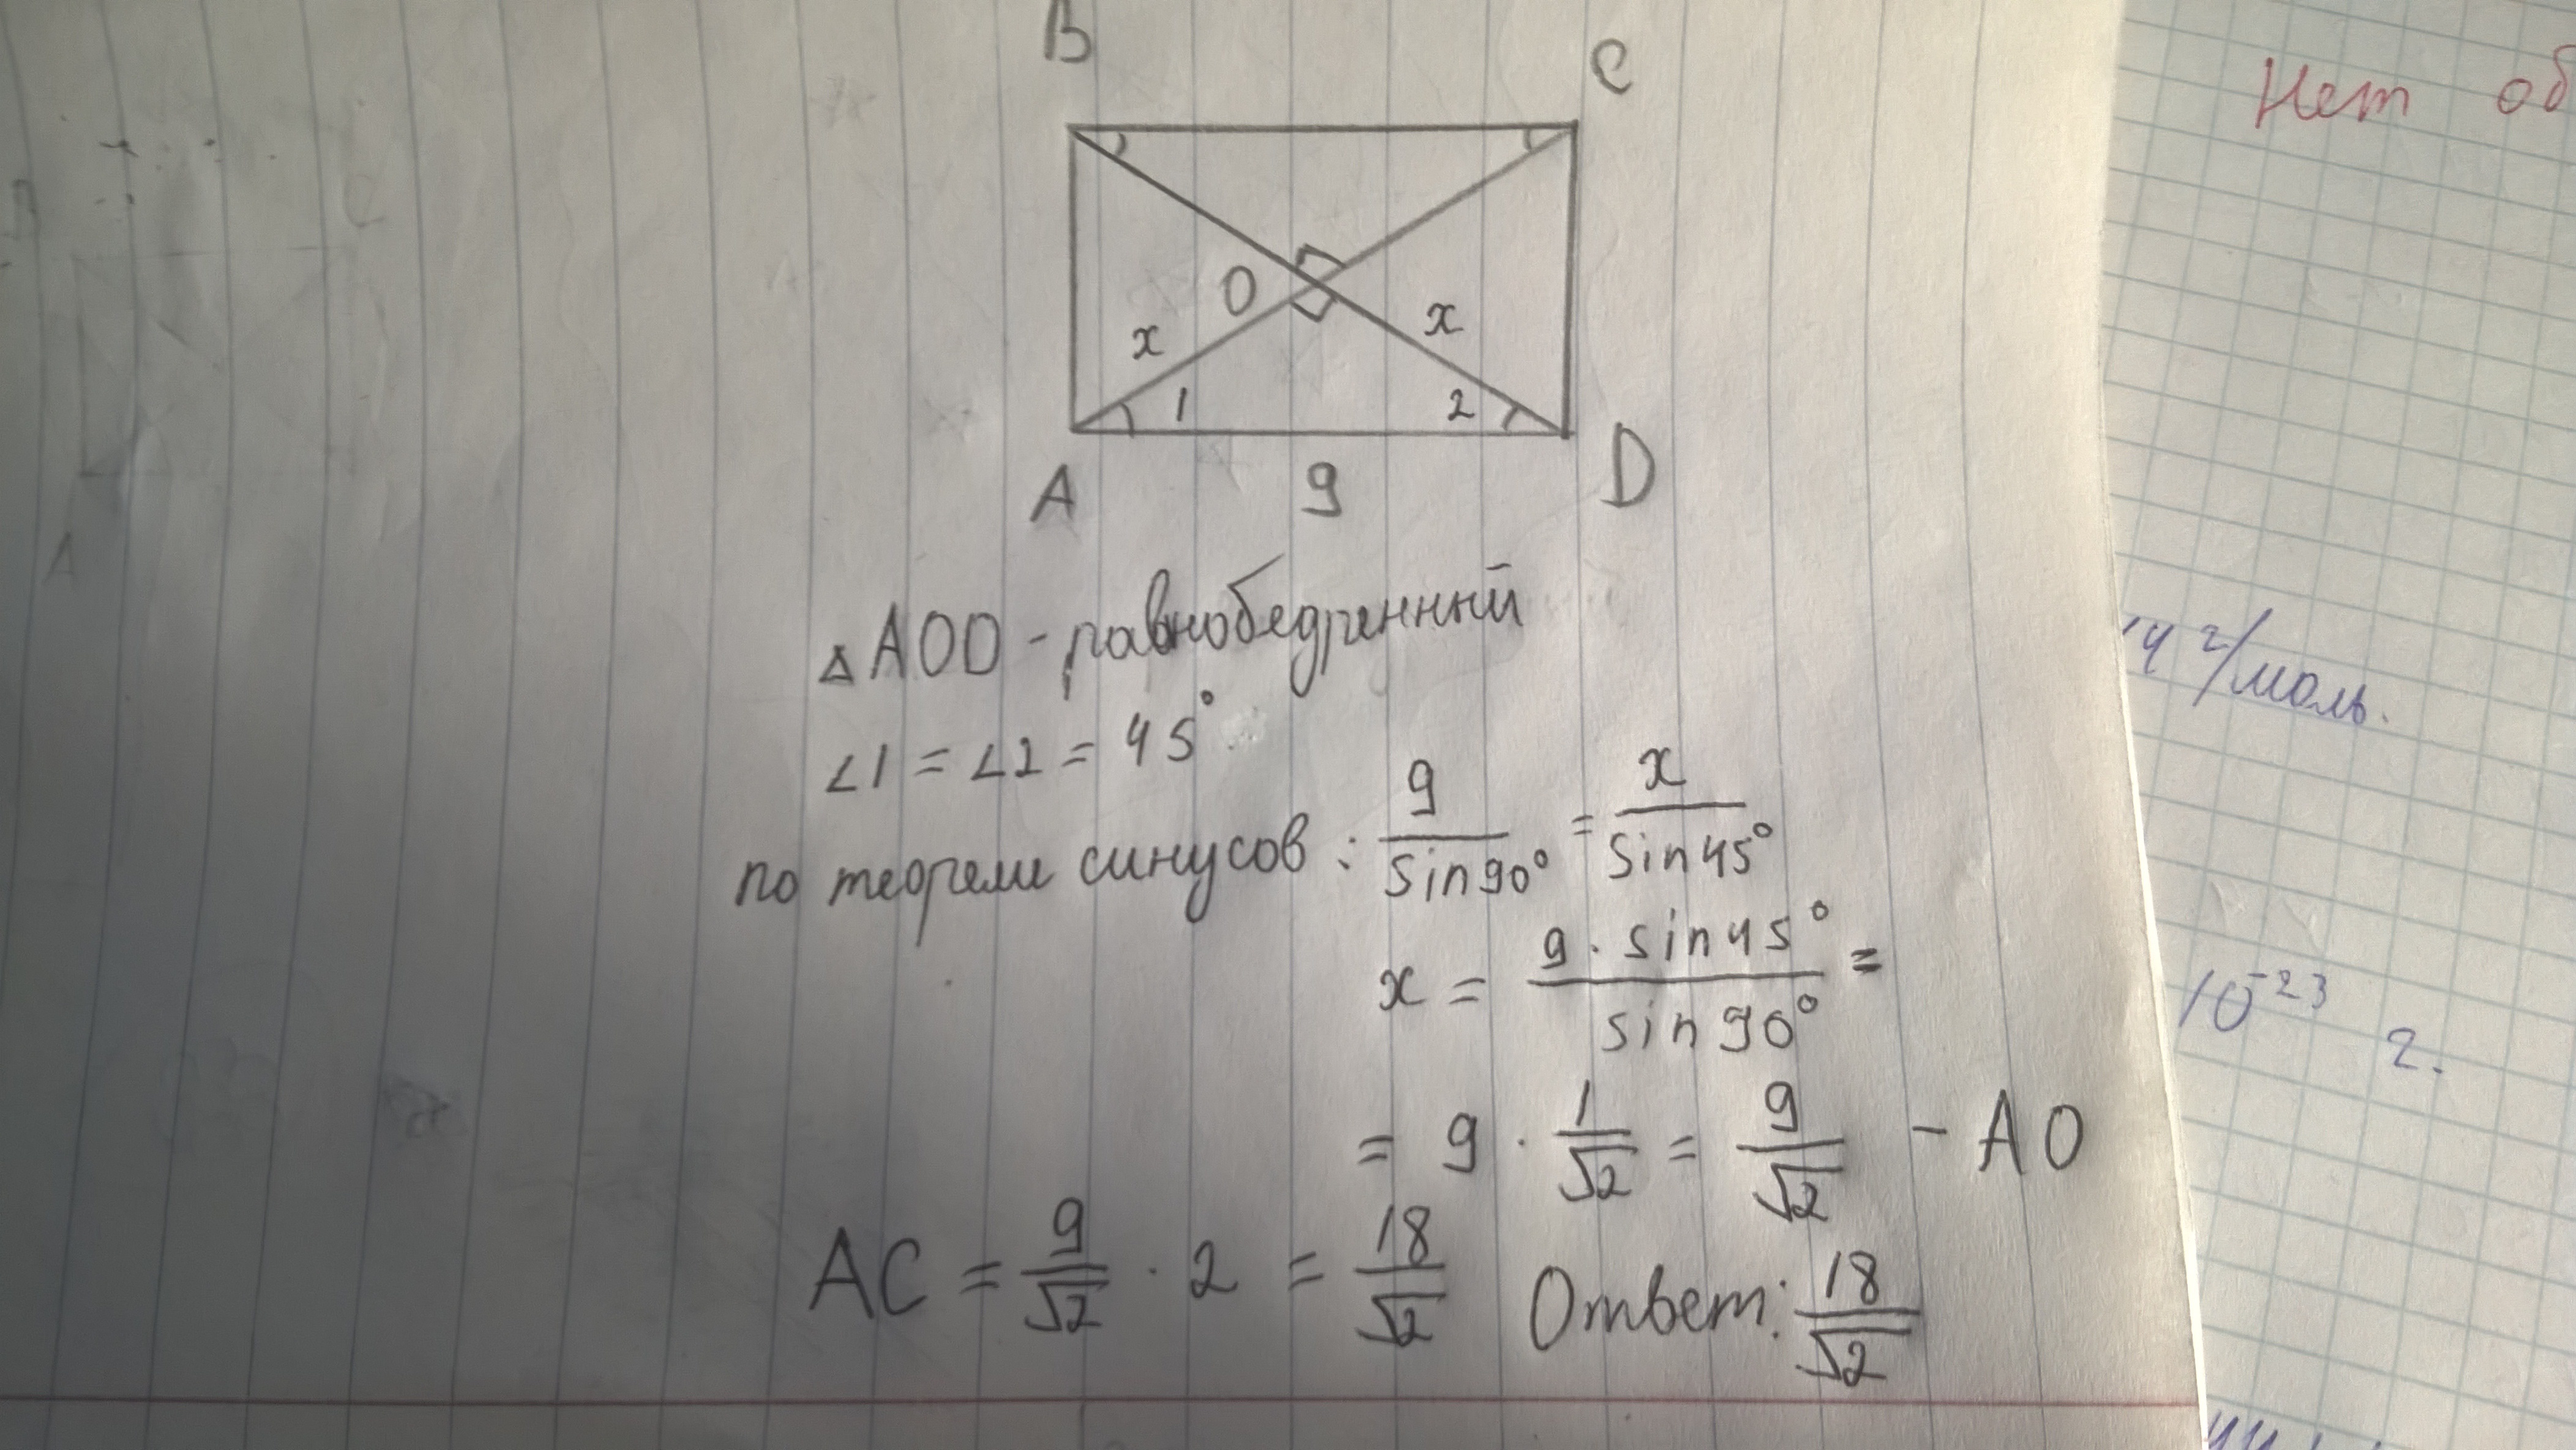 B
C
O
x
x
1
2
A
9
D
△AOD - равнобедренный
∠1 = ∠2 = 45°
по теореме синусов : 9/sin90° = x/sin45°
x = 9·sin45°/sin90° =
= 9 · 1/√2 = 9/√2 - AO
AC = 9/√2 · 2 = 18/√2 Ответ: 18/√2
Нет об
4 г/моль.
10⁻²³ г.